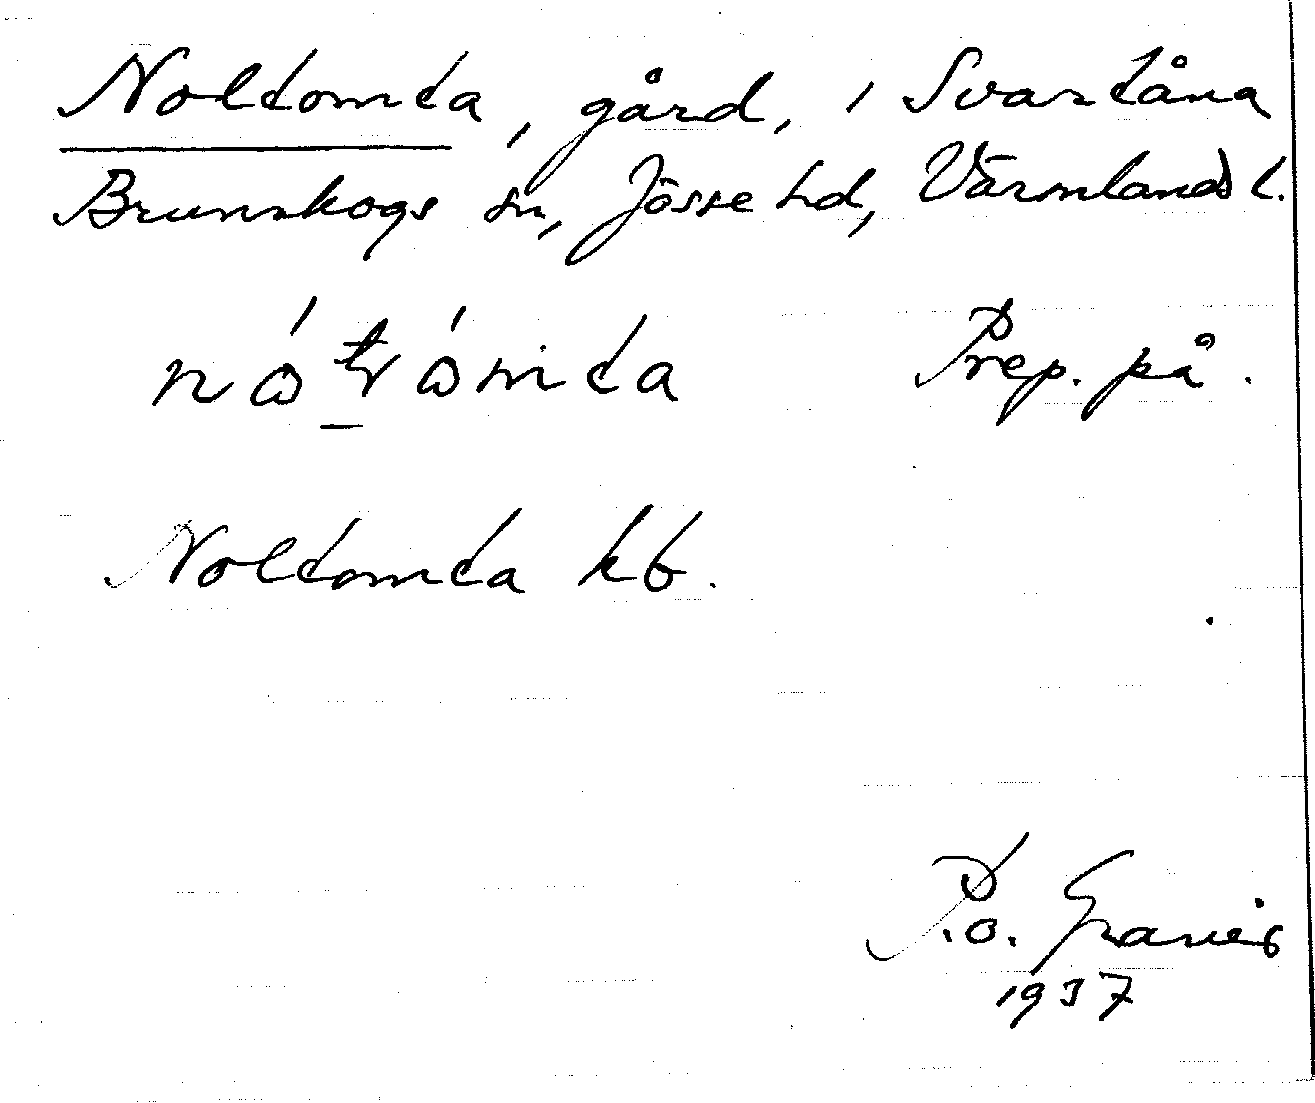 Noltomta, gård, i Svartåna
Brunskogs sn, Jösse hd, Värmlands l.
Prep. på.
Noltomta kb.
P.O.
1937